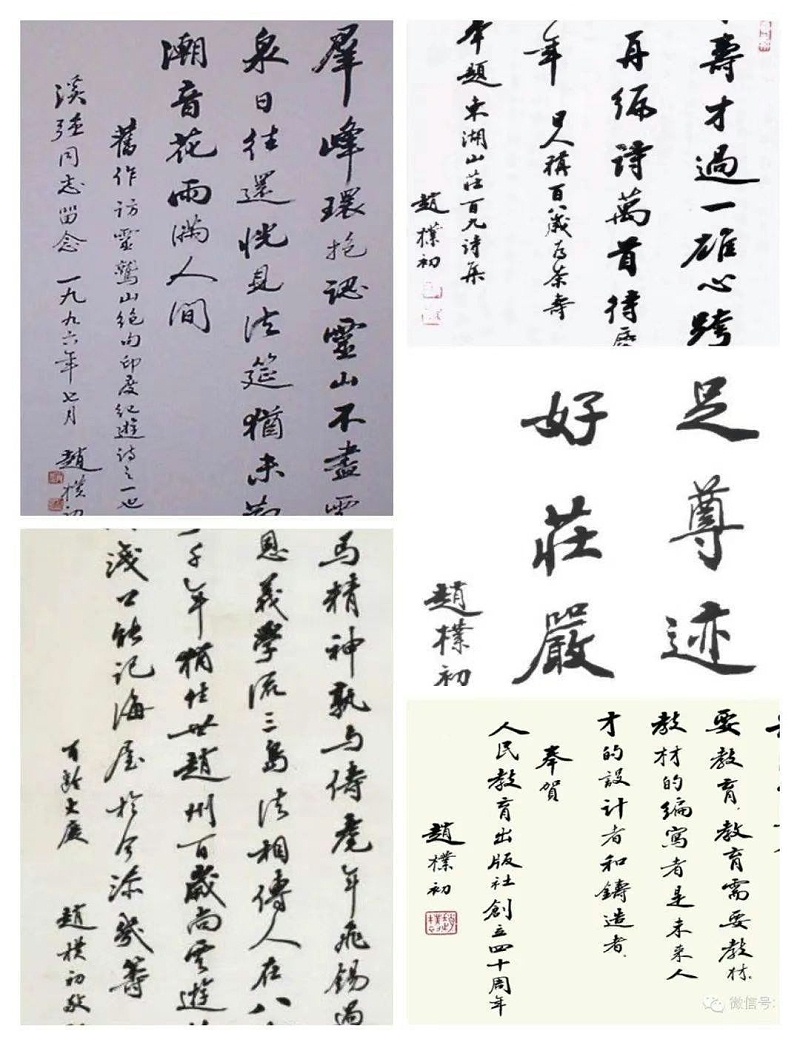 羣峰環抱認靈山不盡雲
泉日往還恍見法筵猶未
潮音花雨滿人间
舊作访靈鷲山绝句印度纪遊诗之一也
溪 同志留念 一九九六年七月 趙樸初
壽才過一雄心跨
再编詩萬首待
年 日人稱百八歲为茶壽
奉題東湖山莊百九詩集
趙樸初
足尊迹
好莊嚴
趙樸初
馬精神孰与儔耄年飛錫過
恩義學流三島法相傳人在八
一千年猶住世趙州百歲尚雲遊
浅口能记海屋於今添幾籌
百龄大慶
趙樸初敬
要教育，教育需要教材。
教材的编寫者是未来人
才的設计者和鑄造者。
奉賀
人民教育出版社創立四十周年
趙樸初
微信号: